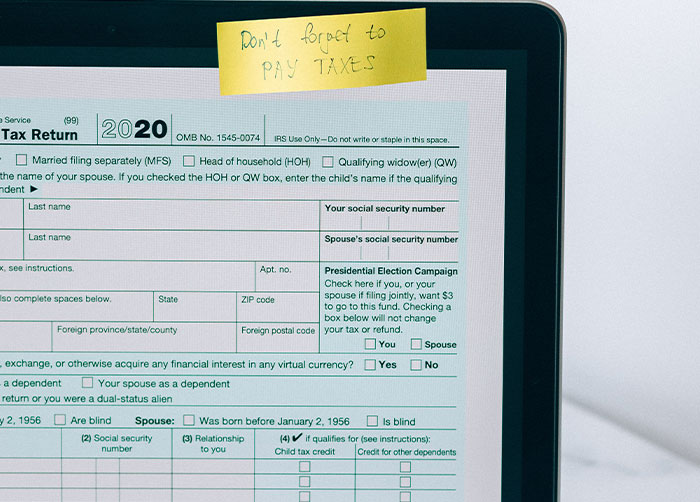 Don't forget to
PAY TAXES
e Service (99)
Tax Return
2020
OMB No. 1545-0074
IRS Use Only—Do not write or staple in this space.
Married filing separately (MFS) Head of household (HOH) Qualifying widow(er) (QW)
the name of your spouse. If you checked the HOH or QW box, enter the child's name if the qualifying
ndent ►
Last name
Your social security number
Last name
Spouse's social security number
x, see instructions.
Apt. no.
Presidential Election Campaign
Check here if you, or your
spouse if filing jointly, want $3
to go to this fund. Checking a
box below will not change
your tax or refund.
You Spouse
lso complete spaces below.
State
ZIP code
Foreign province/state/county
Foreign postal code
, exchange, or otherwise acquire any financial interest in any virtual currency? Yes No
a dependent Your spouse as a dependent
return or you were a dual-status alien
y 2, 1956 Are blind Spouse: Was born before January 2, 1956 Is blind
(2) Social security
number
(3) Relationship
to you
(4) ✔ if qualifies for (see instructions):
Child tax credit Credit for other dependents